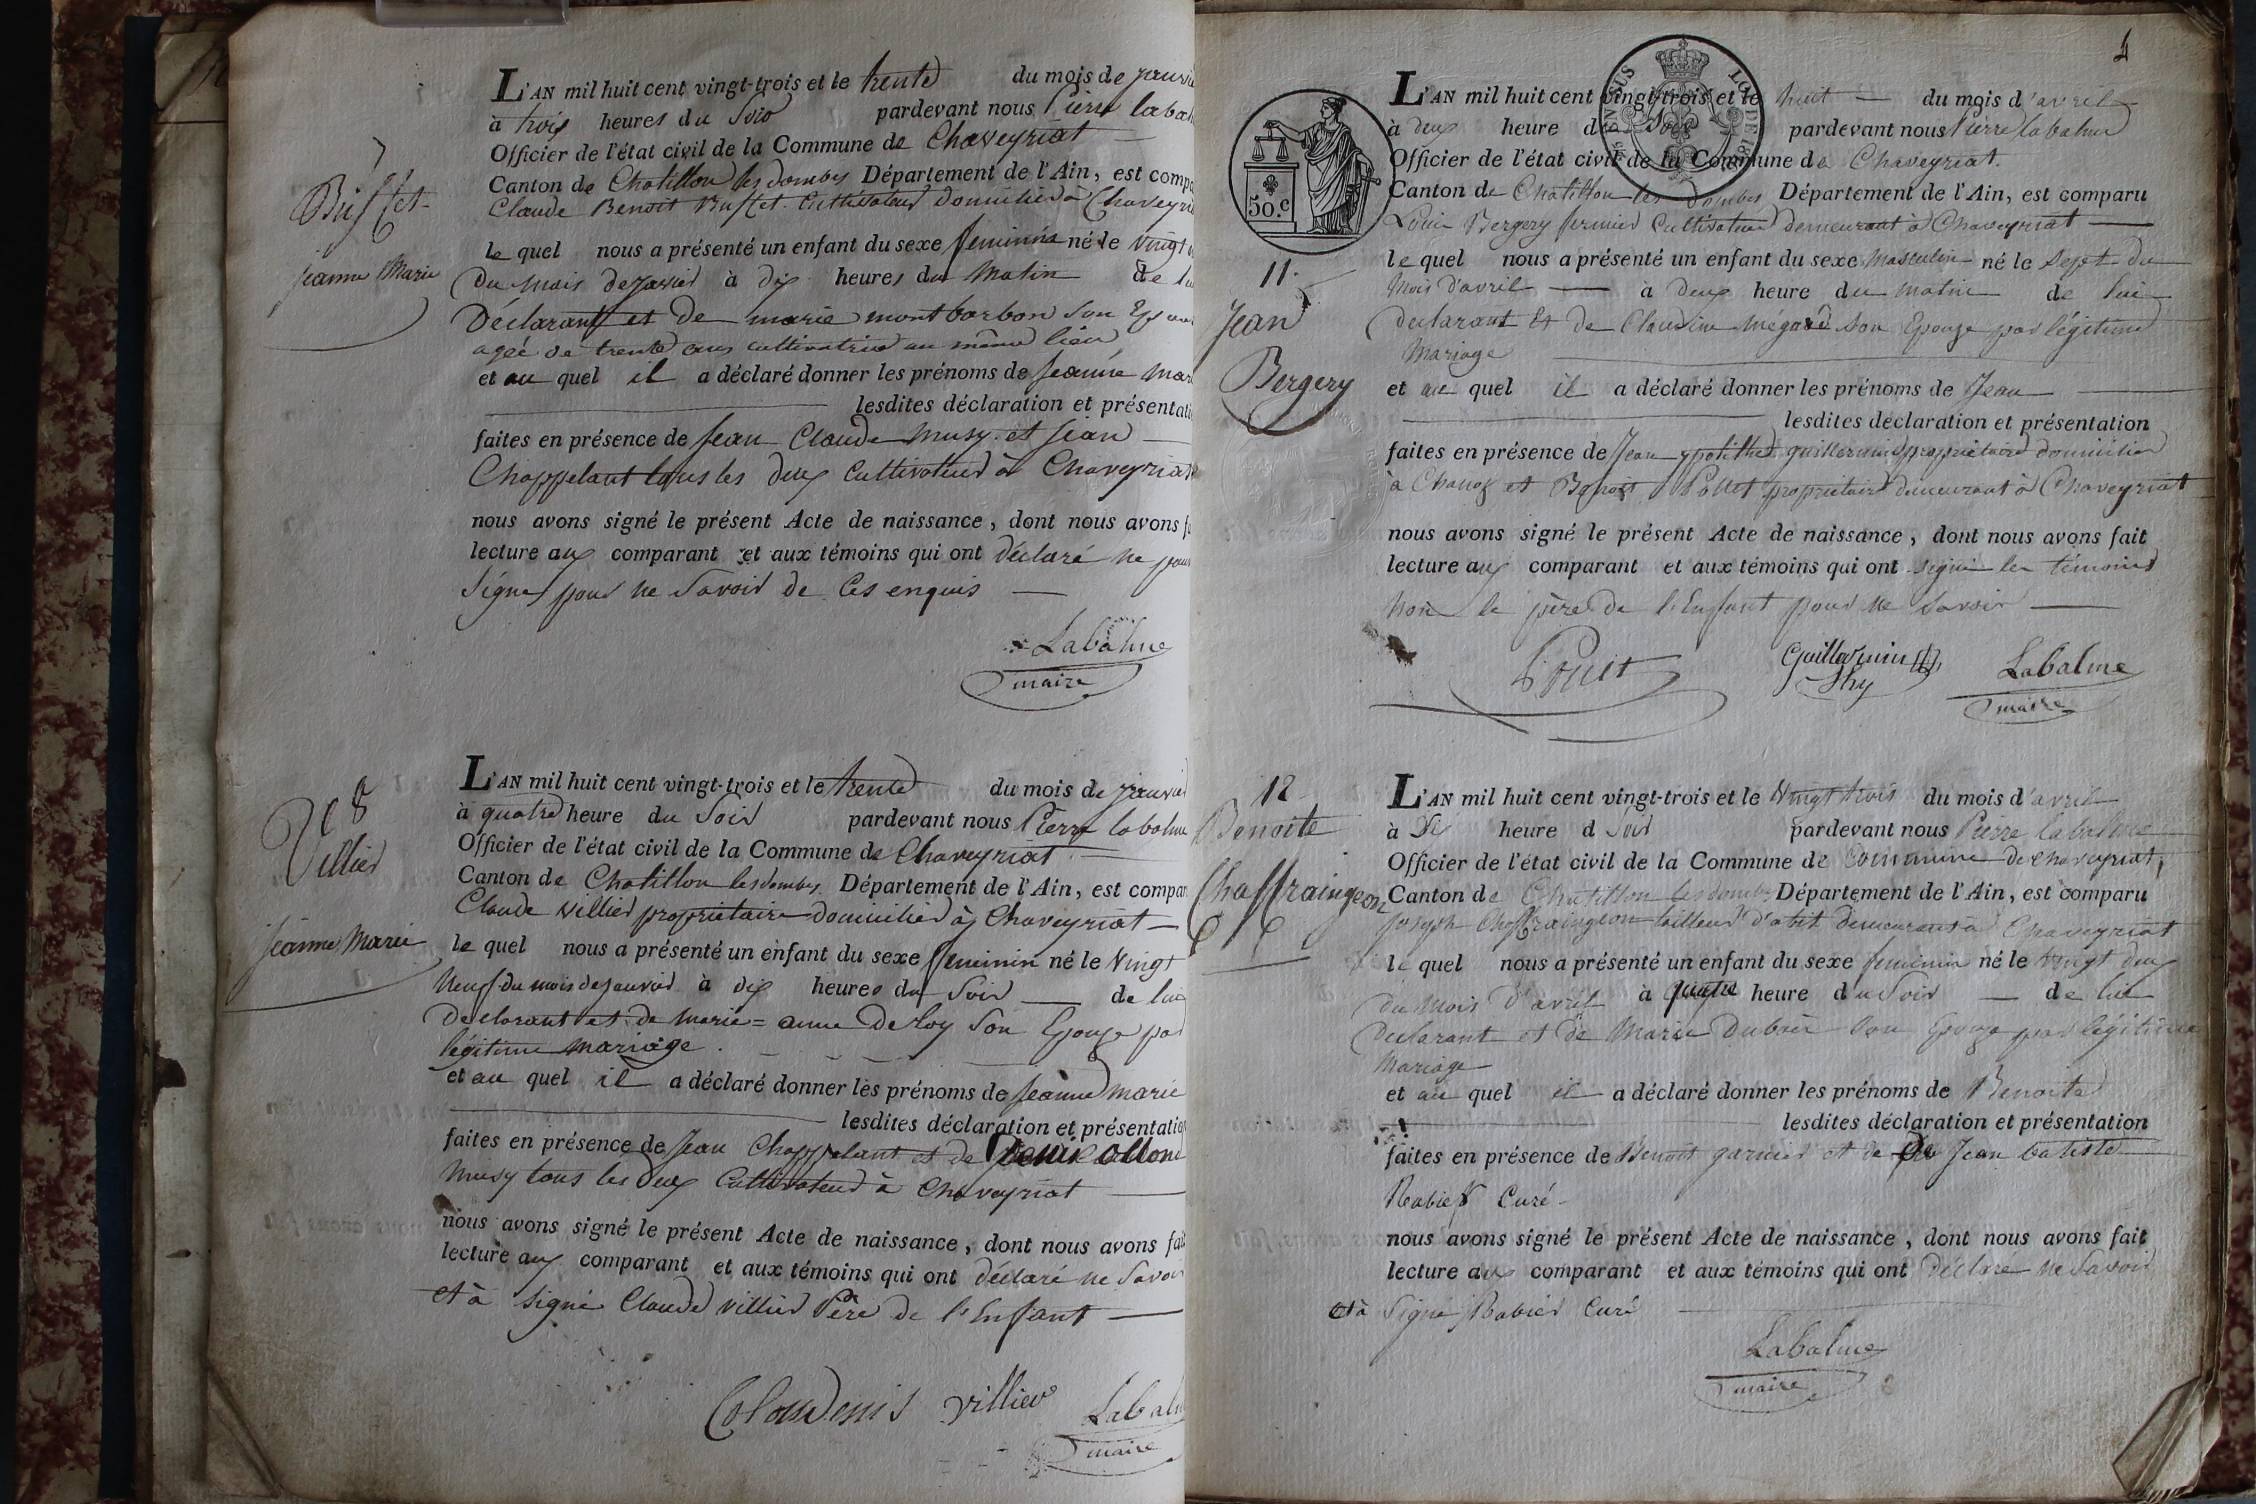 7
Buffet
jeanne Marie
L'AN mil huit cent vingt-trois et le trente du mois de janvie
à trois heures du Soir pardevant nous Pierre labal
Officier de l'état civil de la Commune de Chaveyriat
Canton de Chatillon les dombes Département de l'Ain, est compa
Claude Benoit Buffet Cultivateur domicilié à Chaveyria
le quel nous a présenté un enfant du sexe feminin né le vingt
du mois de janvier à dix heures du Matin de lui
Déclarant et de marie montbarbon Son Epouse
agée de trente ans cultivatrice au même lieu
et au quel il a déclaré donner les prénoms de jeanne mari
lesdites déclaration et présentati
faites en présence de jean Claude Musy et jean
Chappelant tous les deux Cultivateur à Chaveyriat
nous avons signé le présent Acte de naissance, dont nous avons f
lecture aux comparant et aux témoins qui ont déclaré ne
Signer pour ne Savoir de Ces enquis
Labalme
maire
8
Villier
jeanne Marie
L'AN mil huit cent vingt-trois et le trente du mois de janvier
à quatre heure du Soir pardevant nous Pierre labalme
Officier de l'état civil de la Commune de Chaveyriat
Canton de Chatillon les dombes Département de l'Ain, est compar
Claude Villier propriétaire domicilié à Chaveyriat
le quel nous a présenté un enfant du sexe feminin né le Vingt
Neuf du mois de janvier à dix heures du Soir de lui
Declarant et de Marie=anne Deloy Son Epouze par
légitime mariage
et au quel il a déclaré donner les prénoms de jeanne marie
lesdites déclaration et présentation
faites en présence de jean Chappelant et de
Musy tous les deux Cultivateur à Chaveyriat
nous avons signé le présent Acte de naissance, dont nous avons fait
lecture aux comparant et aux témoins qui ont déclaré ne Savoir
et à signé Claude Villier Père de l'Enfant
villier Labalm
maire
4
50.c
11.
Jean
Bergery
L'AN mil huit cent vingt-trois et le huit du mois d'avril
à deux heure du Soir pardevant nous Pierre labalme
Officier de l'état civil de la Commune de Chaveyriat
Canton de Chatillon les dombes Département de l'Ain, est comparu
Louis Bergery fermier Cultivateur demeurant à Chaveyriat
le quel nous a présenté un enfant du sexe Masculin né le Sept du
Mois d'avril à deux heure du matin de lui
declarant Et de Claudine Mégard Son Epouze par légitime
Mariage
et au quel il a déclaré donner les prénoms de Jean
lesdites déclaration et présentation
faites en présence de Jean ypolithe guillermin propriétaire domicilié
à Chanoz et Benoit Pollet propriétaire demeurant à Chaveyriat
nous avons signé le présent Acte de naissance, dont nous avons fait
lecture aux comparant et aux témoins qui ont signé les témoins
non le père de l'Enfant pour ne Savoir
Guillermin Labalme
hy maire
12
Benoite
Chaffraingeon
L'AN mil huit cent vingt-trois et le Vingt trois du mois d'avril
à Six heure d Soir pardevant nous Pierre labalme
Officier de l'état civil de la Commune de Commune de Chaveyriat,
Canton de Chatillon les dombes Département de l'Ain, est comparu
joseph Chaffraingeon tailleur d'abit demeurant à Chaveyriat
le quel nous a présenté un enfant du sexe feminin né le Vingt deux
du Mois d'avril à quatre heure du Soir de lui
Declarant et de Marie Son Epouze par légitime
Mariage
et au quel il a déclaré donner les prénoms de Benoite
lesdites déclaration et présentation
faites en présence de Benoit garnier et de Jean batiste
Rabier Curé
nous avons signé le présent Acte de naissance, dont nous avons fait
lecture aux comparant et aux témoins qui ont Déclare ne Savoir
et à Signé Rabier Curé
Labalme
maire